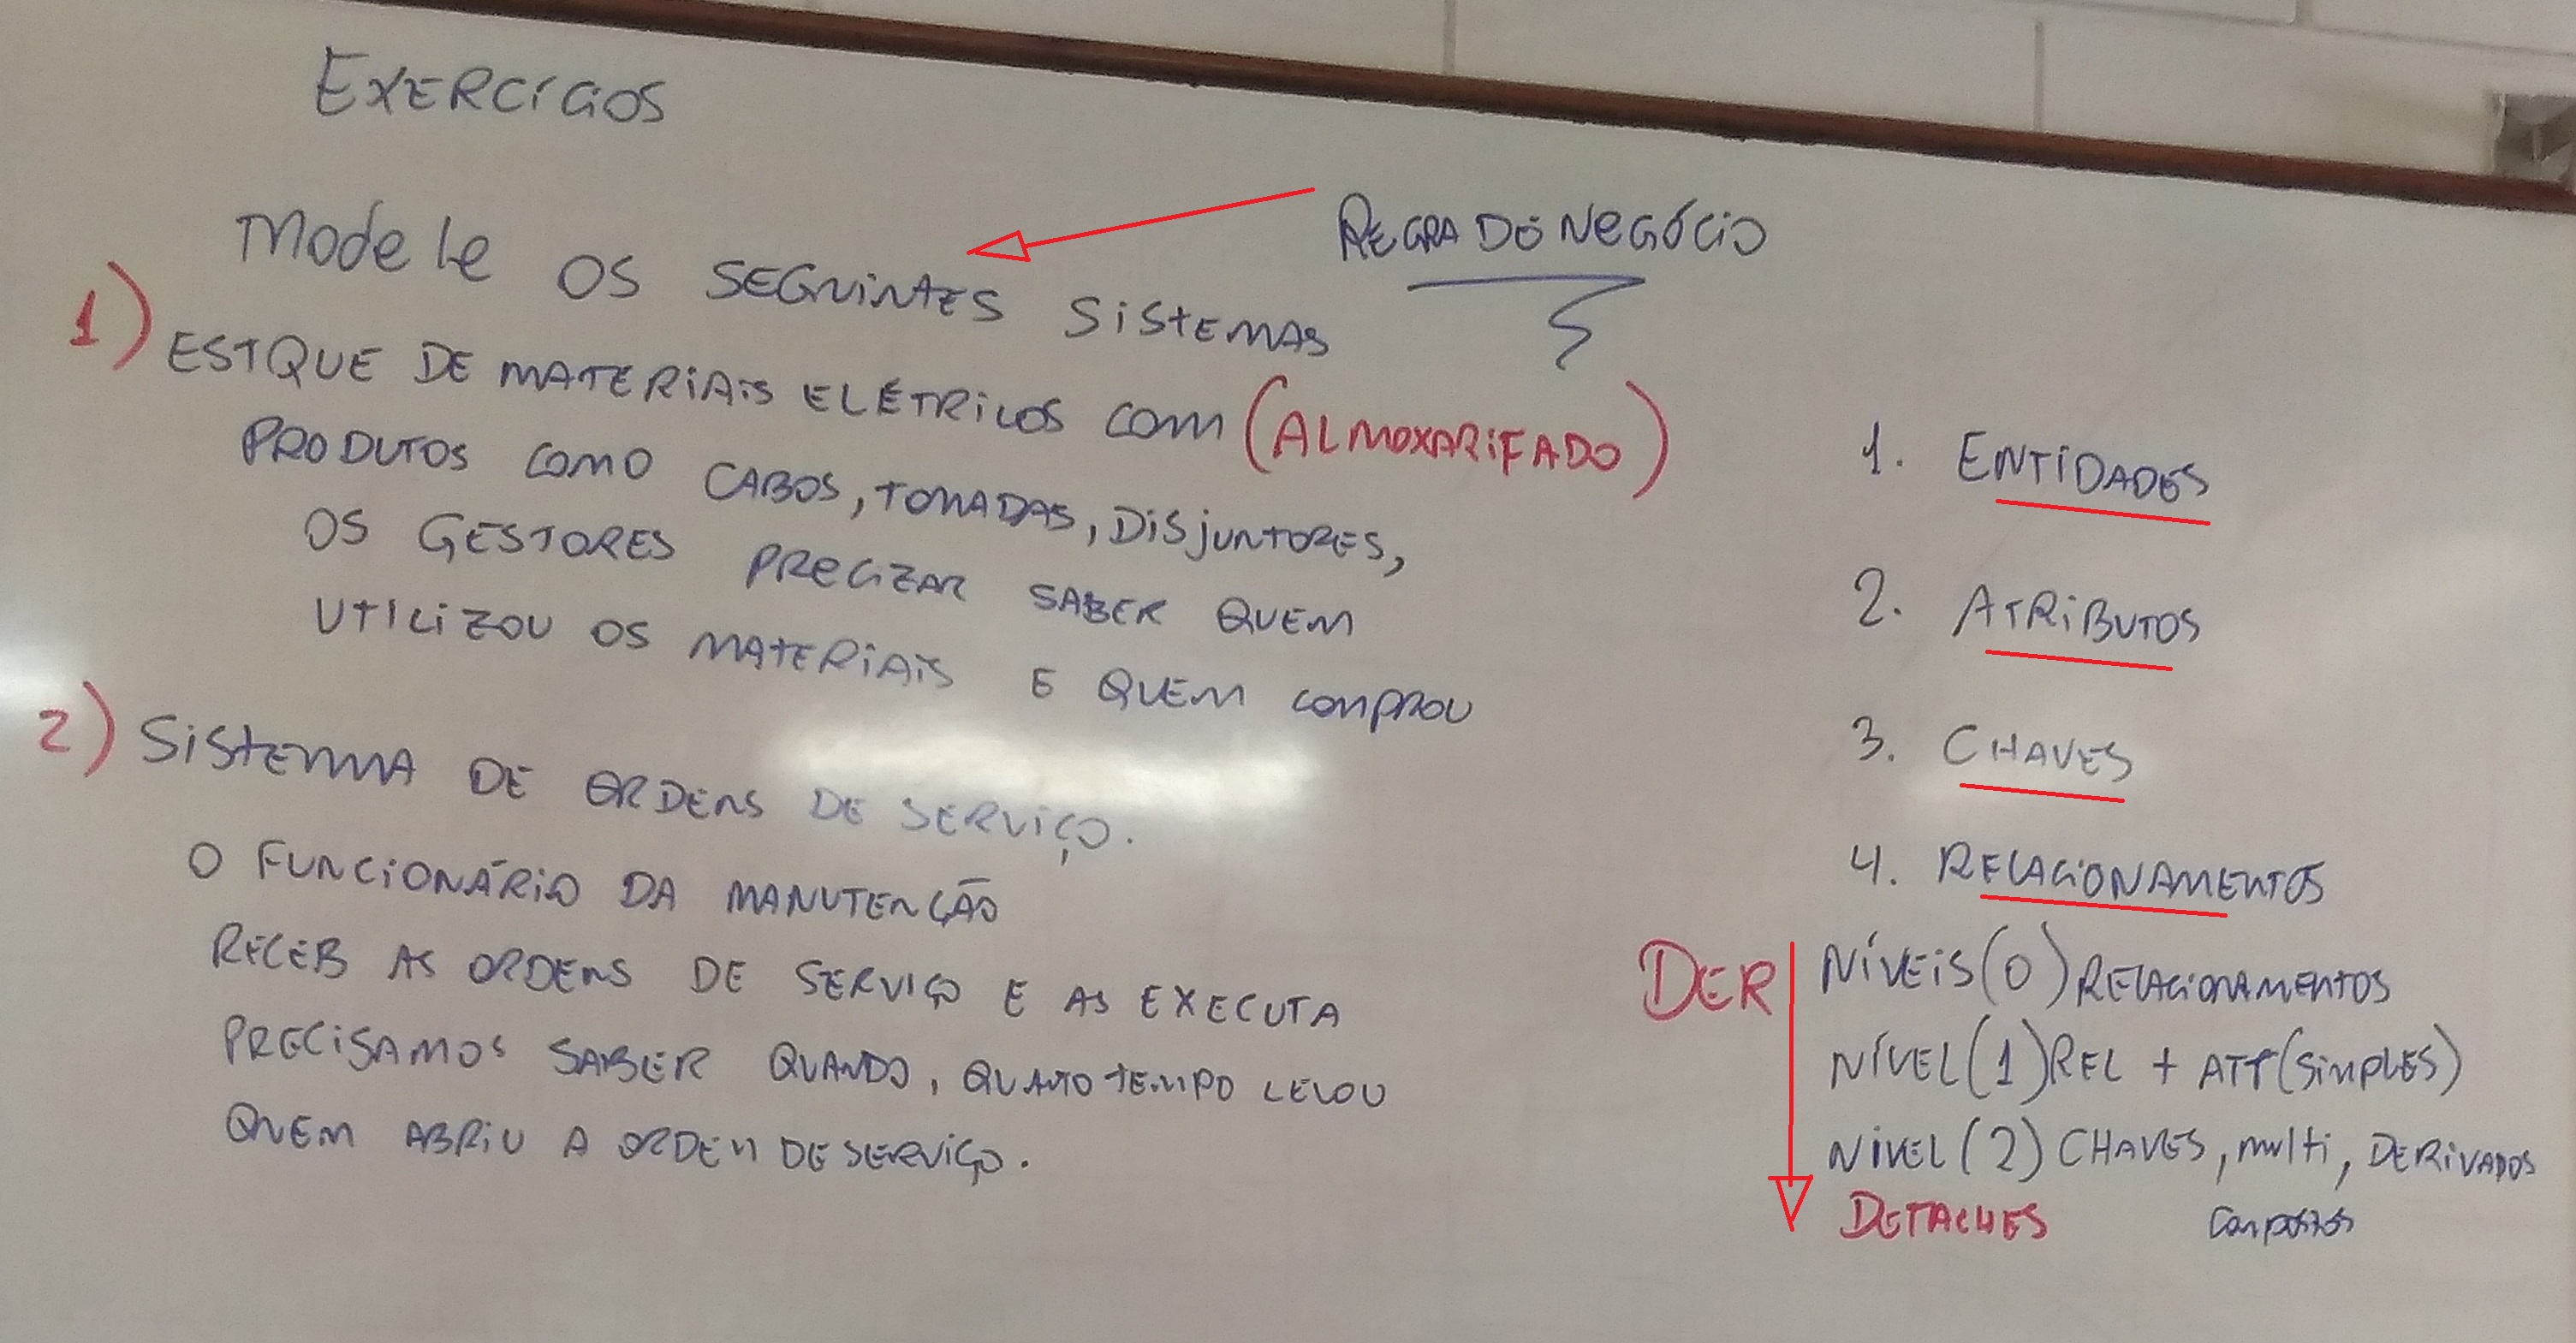 EXERCÍCIOS
REGRA DO NEGÓCIO
Modele OS SEGUINTES SISTEMAS
1) ESTQUE DE MATERIAIS ELÉTRICOS COM (ALMOXARIFADO)
PRODUTOS COMO CABOS, TOMADAS, DISJUNTORES,
OS GESTORES PRECIZAR SABER QUEM
UTILIZOU OS MATERIAIS E QUEM COMPROU
2) SISTEMA DE ORDENS DE SERVIÇO.
O FUNCIONÁRIO DA MANUTENÇÃO
RECEB AS ORDENS DE SERVIÇO E AS EXECUTA
PRECISAMOS SABER QUANDO, QUANTO TEMPO LEVOU
QUEM ABRIU A ORDEM DE SERVIÇO.
1. ENTIDADES
2. ATRIBUTOS
3. CHAVES
4. RELACIONAMENTOS
DER
NÍVEIS (0) RELACIONAMENTOS
NÍVEL (1) REL + ATT (SIMPLES)
NÍVEL (2) CHAVES, multi, DERIVADOS
DETALHES compostos